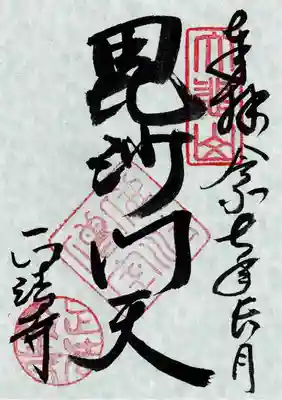 奉拝 令和七年長月
毘沙門天
正法寺